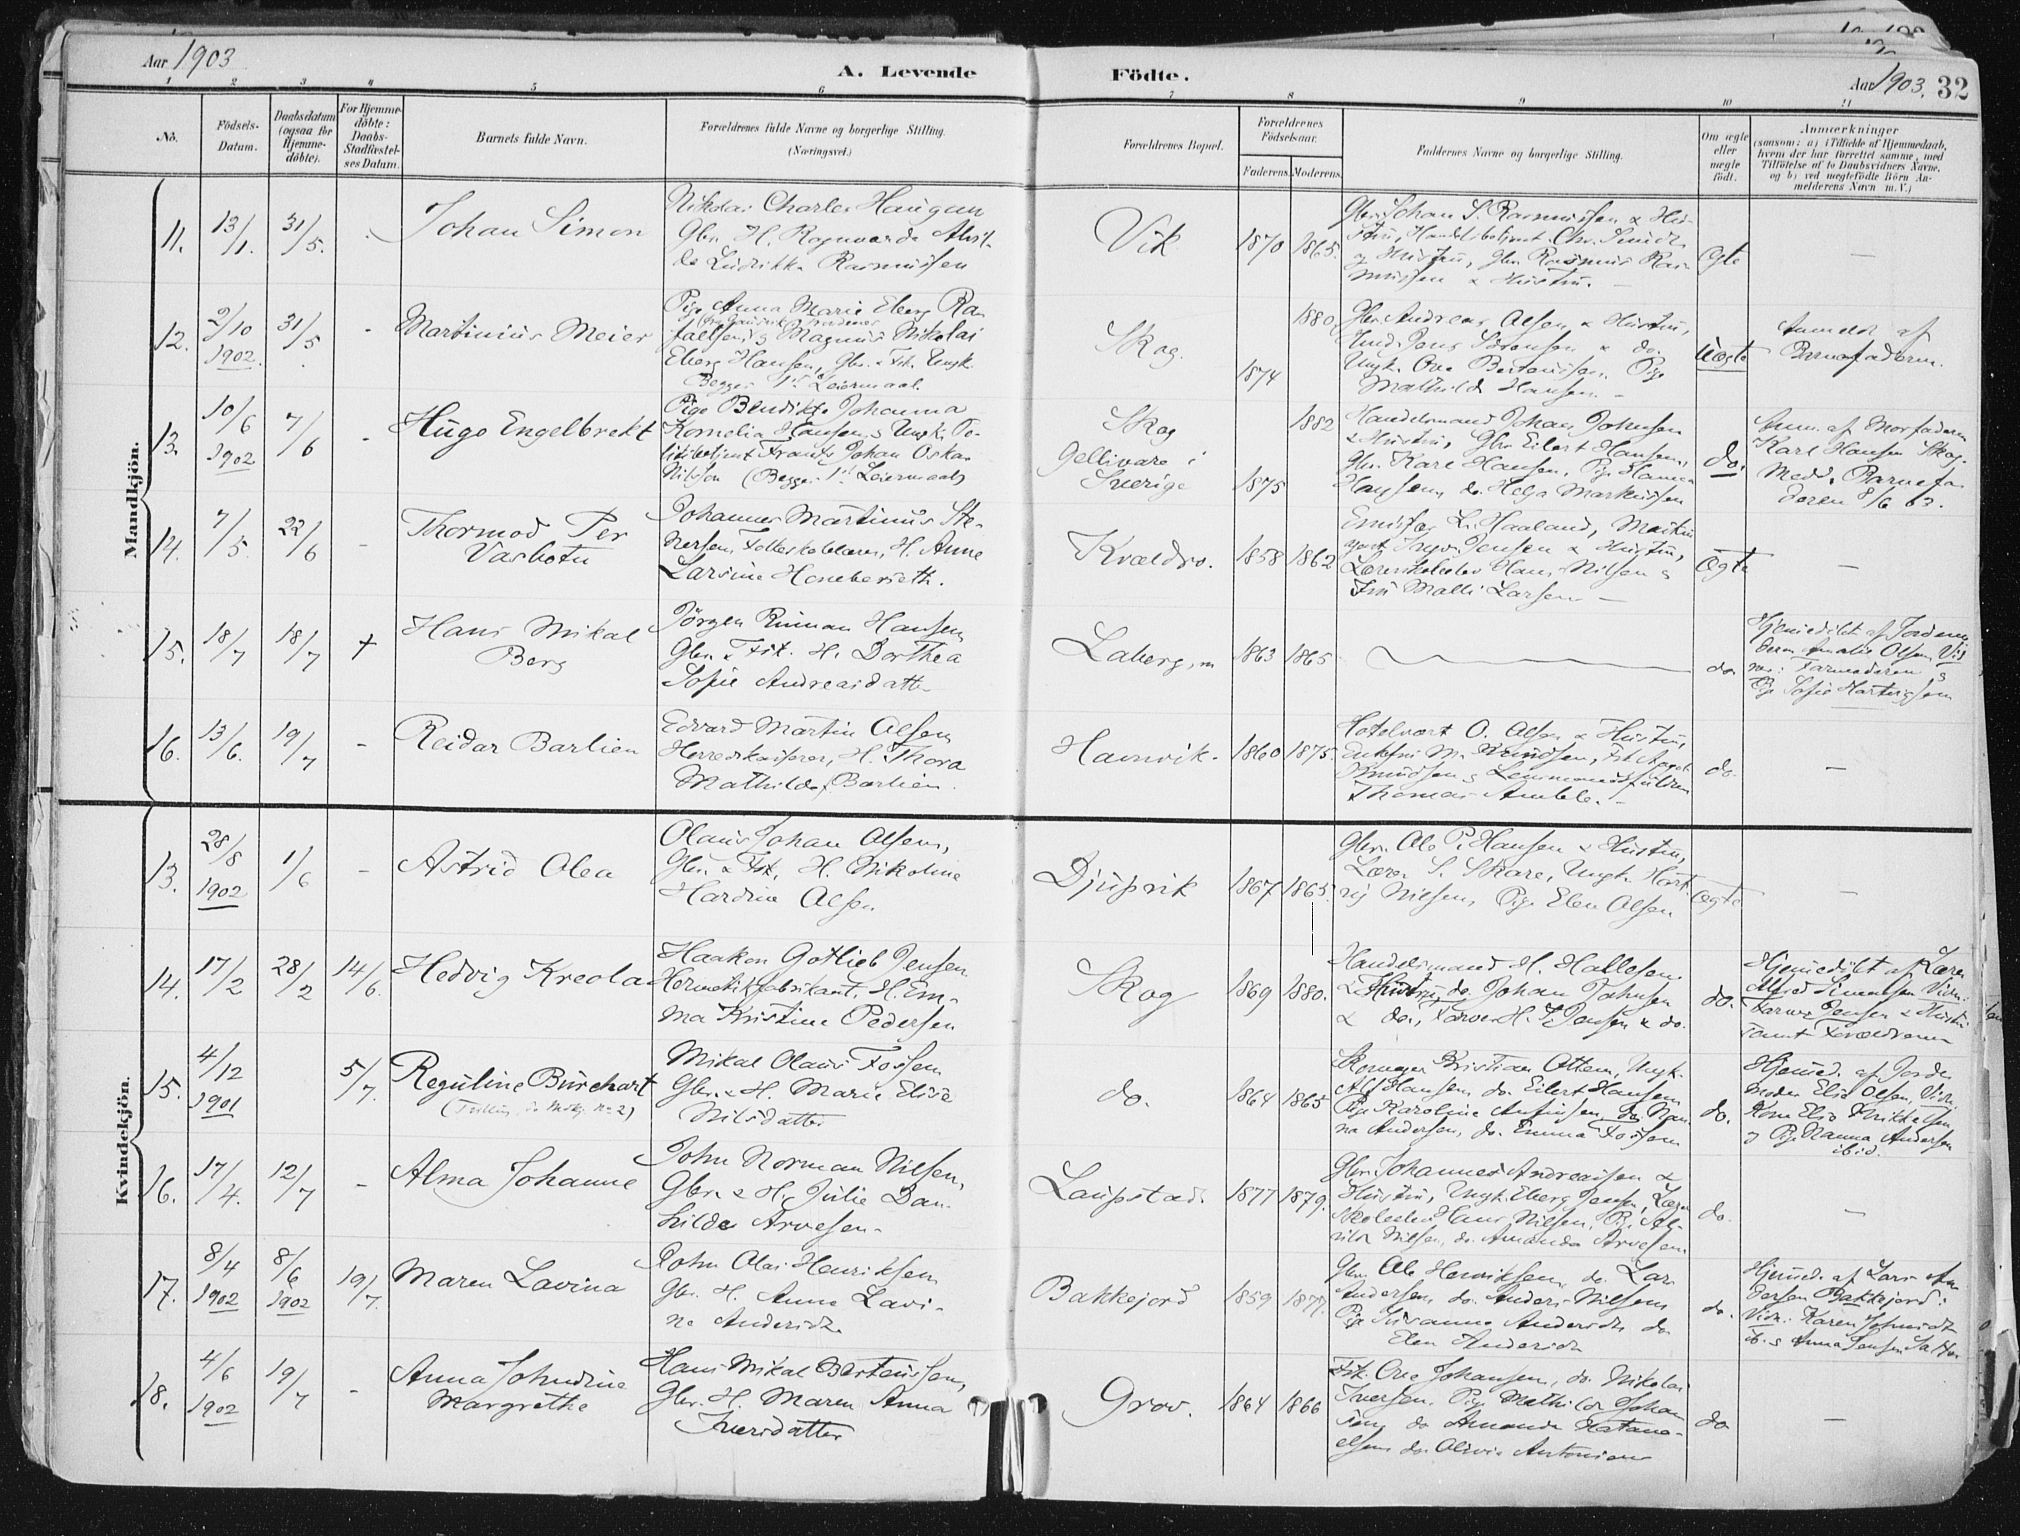 Aar 1903
A. Levende Födte.
Aar 1903. 32
1 2 3 4 5 6 7 8 9 10 11
No.
Födsels-
Datum.
Daabsdatum
(ogsaa for
Hjemme-
döbte).
For Hjemme-
döbte:
Daabs-
Stadfæstel-
ses Datum.
Barnets fulde Navn.
Forældrenes fulde Navne og borgerlige Stilling.
(Næringsvei.)
Forældrenes Bopæl.
Forældrenes
Födselsaar.
Faderens. Moderens.
Faddernes Navne og borgerlige Stilling.
Om ægte
eller
uægte
födt.
Anmærkninger
(saasom: a) i Tilfælde af Hjemmedaab,
hvem der har forrettet samme, med
Tilföielse af to Daabsvidners Navne.
og b) ved uægtefödte Börn An-
melderens Navn m.V.)
Mandkjön.
11. 13/1. 31/5.
Johan Simon
Nikolai Charles Haugan
Gbr. H. Ragnvarda Alvil-
da Ludrikka Rasmussen
Vik 1870 1865.
Gbr. Johan S. Rasmussen & Hus-
tru, Handelsbetjent Chr.
og Hustru, Gbr. Rasmus Ras-
mussen & Hustru.
Ægte
12. 2/10 1902. 31/5
Martinius Meier
Pige Anna Marie Eberg Ra-
faelsen & Magnus Nikolai
Eberg Hansen, Gbr. & Fsk. Ungk.
Begges 1ste Leiermaal.
Skog. 1874 1880
Gbr. Andreas Olsen & Hustru,
Jens Sörensen & do.
Ungk. Ove Berteussen, Pige
Mathilde Hansen
Uægte
Anmeldt af
Barnefaderen.
13. 10/6 1902 7/6
Hugo Engelbrekt
Pige Bendikte Johanna
Kornelia Hansen & Ungk. Po-
litibetjent Frants Johan Oskar
Nilsson (Begges 1ste Leiermaal)
Skog
Gellivare i
Sverige 1875 1882
Handelsmand Johan Johnsen
& Hustru, Gbr. Eilert Hansen,
Gbr. Karl Hansen, Pige Hanna
Hansen, do. Helga Markussen
do.
Anm. af Morfaderen
Karl Hansen Skog.
Medd. Barnefa-
deren 8/6 03.
14. 7/5. 22/6
Thormod Per
Vasbotn
Johannes Martinus Ste-
nersen, Folkeskolelærer, H. Anne
Larsine Honeberieth.
Kvældro. 1858 1862
Emissær L. Haaland,
Jensen & Hustru,
Lærerskoleelev Hans Nilsen &
Fru Malli Larsen
Ægte
15. 18/7 18/7 +
Hans Mikal
Berg
Jörgen Rinnan Hansen
Gbr. & Fsk. H. Dorthea
Sofie Andreasdatter
Laberg 1863 1865
do
Hjemmedöbt af Jordem.
Amalie Olsen, Vid-
ner: Farmoderen &
Pige Sofie Hartvigsen
16. 13/6. 19/7
Reidar Barlien
Edvard Martin Olsen,
Herredskasserer, H. Thora
Mathilde Barlien.
Havnvik. 1860 1875.
Hotelvært O. Olsen & Hustru,
Enkefru M. Knudsen, Frk. Magd.
Knudsen & Lensmandsfuldm.
Thomas
do.
Kvindekjön.
13. 28/8 1902 1/6
Astrid Olea
Olaus Johan Olsen,
Gbr. & Fsk. H. Nikoline
Hardine Olsen
Djupvik 1867 1865.
Gbr. Ole P. Hansen & Hustru,
Lærer S. Skare, Ungk. Hart-
vig Nilsen, Pige Elen Olsen
Ægte
14. 17/2 28/2 14/6.
Hedvig Kreola
Haakon Gotlieb Jensen
Hermetikfabrikant, H. Em-
ma Kristine Pedersen
Skog 1869 1880.
Handelsmand H. Hallesen
& Hustru, do. Johan Johnsen
& do., Farver H. Jensen & do.
do.
Hjemmedöbt af Lærer
Alfred Simonsen Vidn:
Farver Jensen & Hustru
samt Forældrene
15. 4/12 1901 5/7.
Reguline Burchart
(Tvilling, se Mdkj. No 2)
Mikal Olaus Fossem
Gbr. & H. Marie Elise
Nilsdatter
do. 1864 1865
Skomager Kristian Ottem, Ungk.
Alf Hansen, do. Eilert Hansen
Pige Karoline do Nan-
na Andersen, do. Emma Fossem
do.
Hjemmed. af Jorde-
moder Elise Olsen, Vidn.
Kone Elise Mikkelsen
& Pige Nanna Andersen
ibid.
16. 17/4. 12/7
Alma Johanne
John Norman Nilsen,
Gbr. & H. Julie Dan-
hilde Arvesen
Laupstad. 1877 1879.
Gbr. Johannes Andreassen &
Hustru, Ungk. Eberg Jensen, Lærer-
skoleelev Hans Nilsen, P. Al-
vilda Nilsen, do. Amanda Arvesen
do.
17. 8/4 1902 8/6 1902 19/7.
Maren Lavina
John Olai Henriksen
Gbr. H. Anne Lavi-
na Andersdtr.
Bakkejord 1859 1877.
Gbr. Ole Henriksen, do. Lars
Andersen, do. Anders Nilsen,
Pige Susanna Andersdtr do
Elen Andersdtr
do.
Hjemmed. af Lars An-
dersen Bakkejord:
Vidn: Karen Schmidt
ib. & Anna Jensen
18. 4/6 1902 19/7
Anna Johndine
Margrethe
Hans Mikal Berteussen,
Gbr. H. Maren Anna
Iversdatter
Grov. 1864 1866
Fsk. Ove Johansen, do. Nikolai
Iversen, Pige Mathilde Johan-
sen, do Amanda Natana-
elsen do. Olivia Antonisen
do